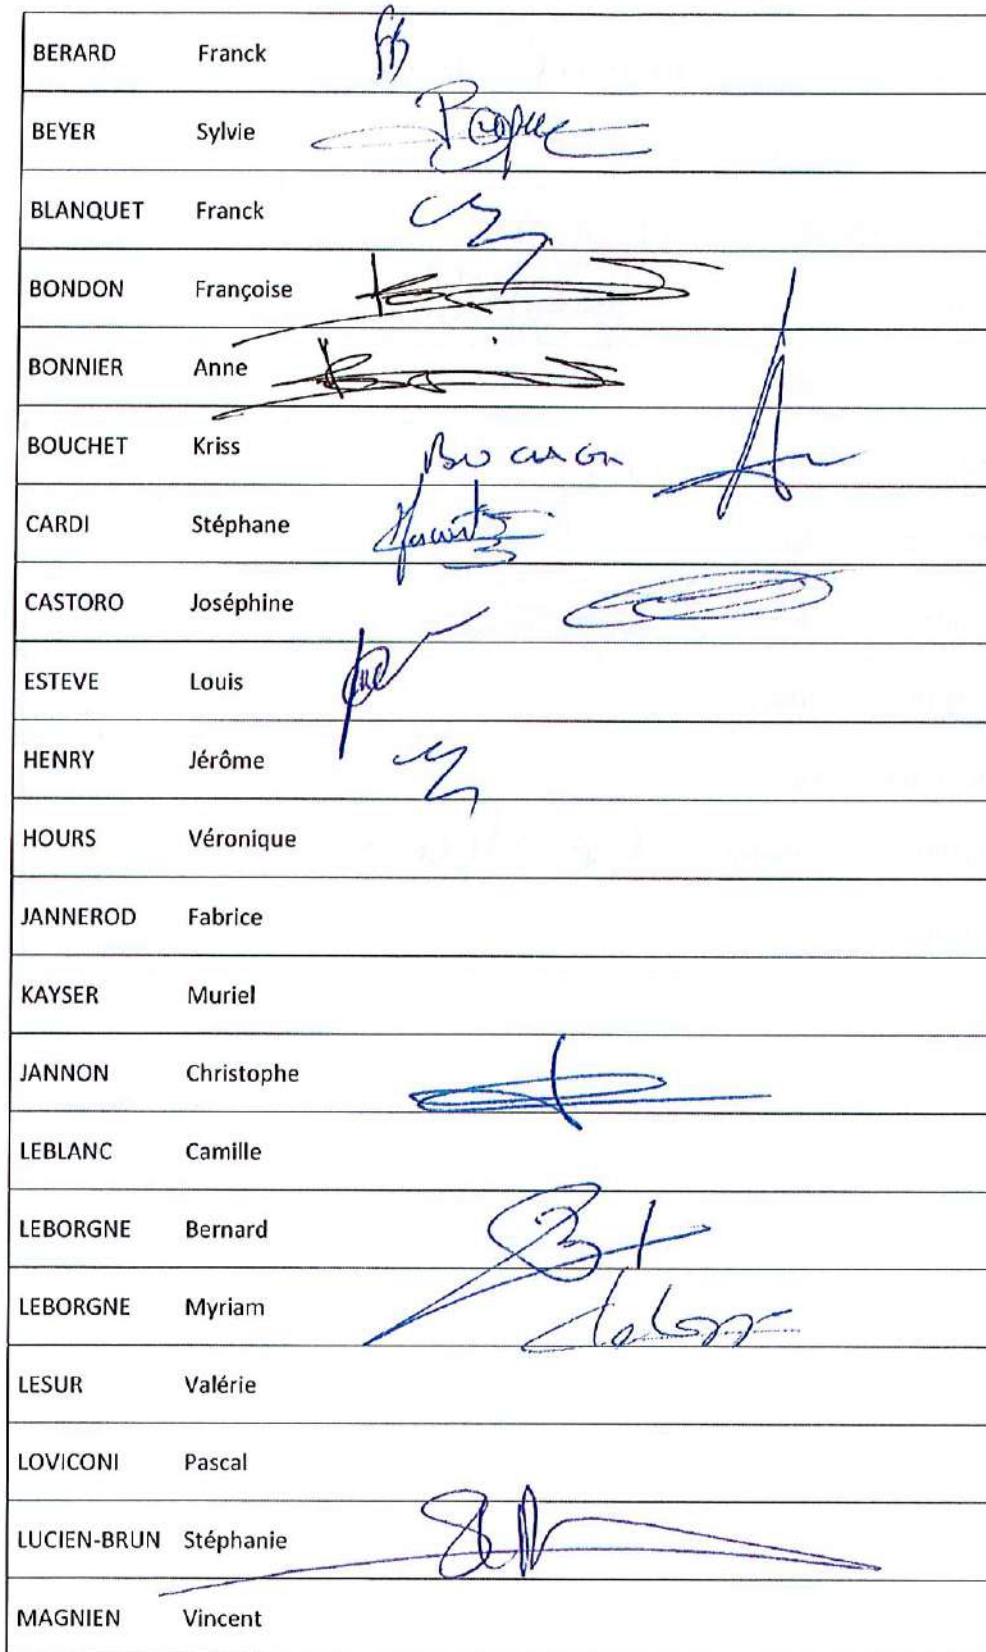 BERARD Franck
BEYER Sylvie
BLANQUET Franck
BONDON Françoise
BONNIER Anne
BOUCHET Kriss
CARDI Stéphane
CASTORO Joséphine
ESTEVE Louis
HENRY Jérôme
HOURS Véronique
JANNEROD Fabrice
KAYSER Muriel
JANNON Christophe
LEBLANC Camille
LEBORGNE Bernard
LEBORGNE Myriam
LESUR Valérie
LOVICONI Pascal
LUCIEN-BRUN Stéphanie
MAGNIEN Vincent